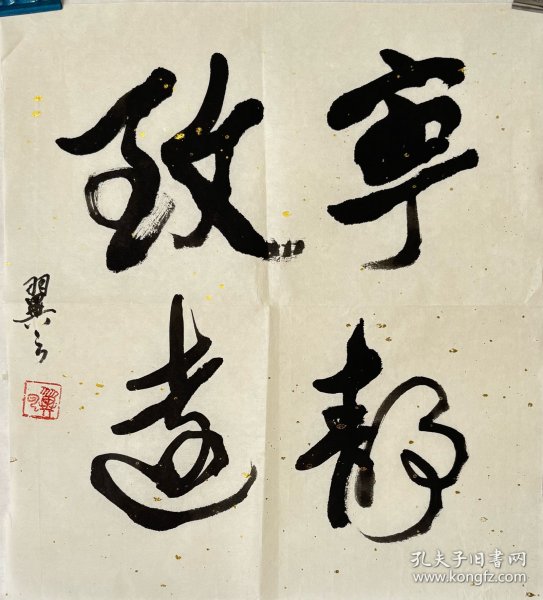 寧靜
致遠
翼之
孔夫子旧书网
www.kongfz.com